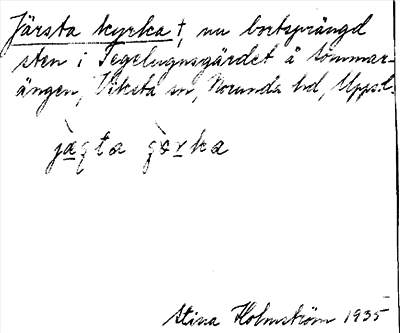 Järsta kyrka †, nu bortsprängd
sten i Tegelugnsgärdet å Sommar-
ängen, Viksta sn, Norunda hd, Upps.l.
Stina Holmström 1935